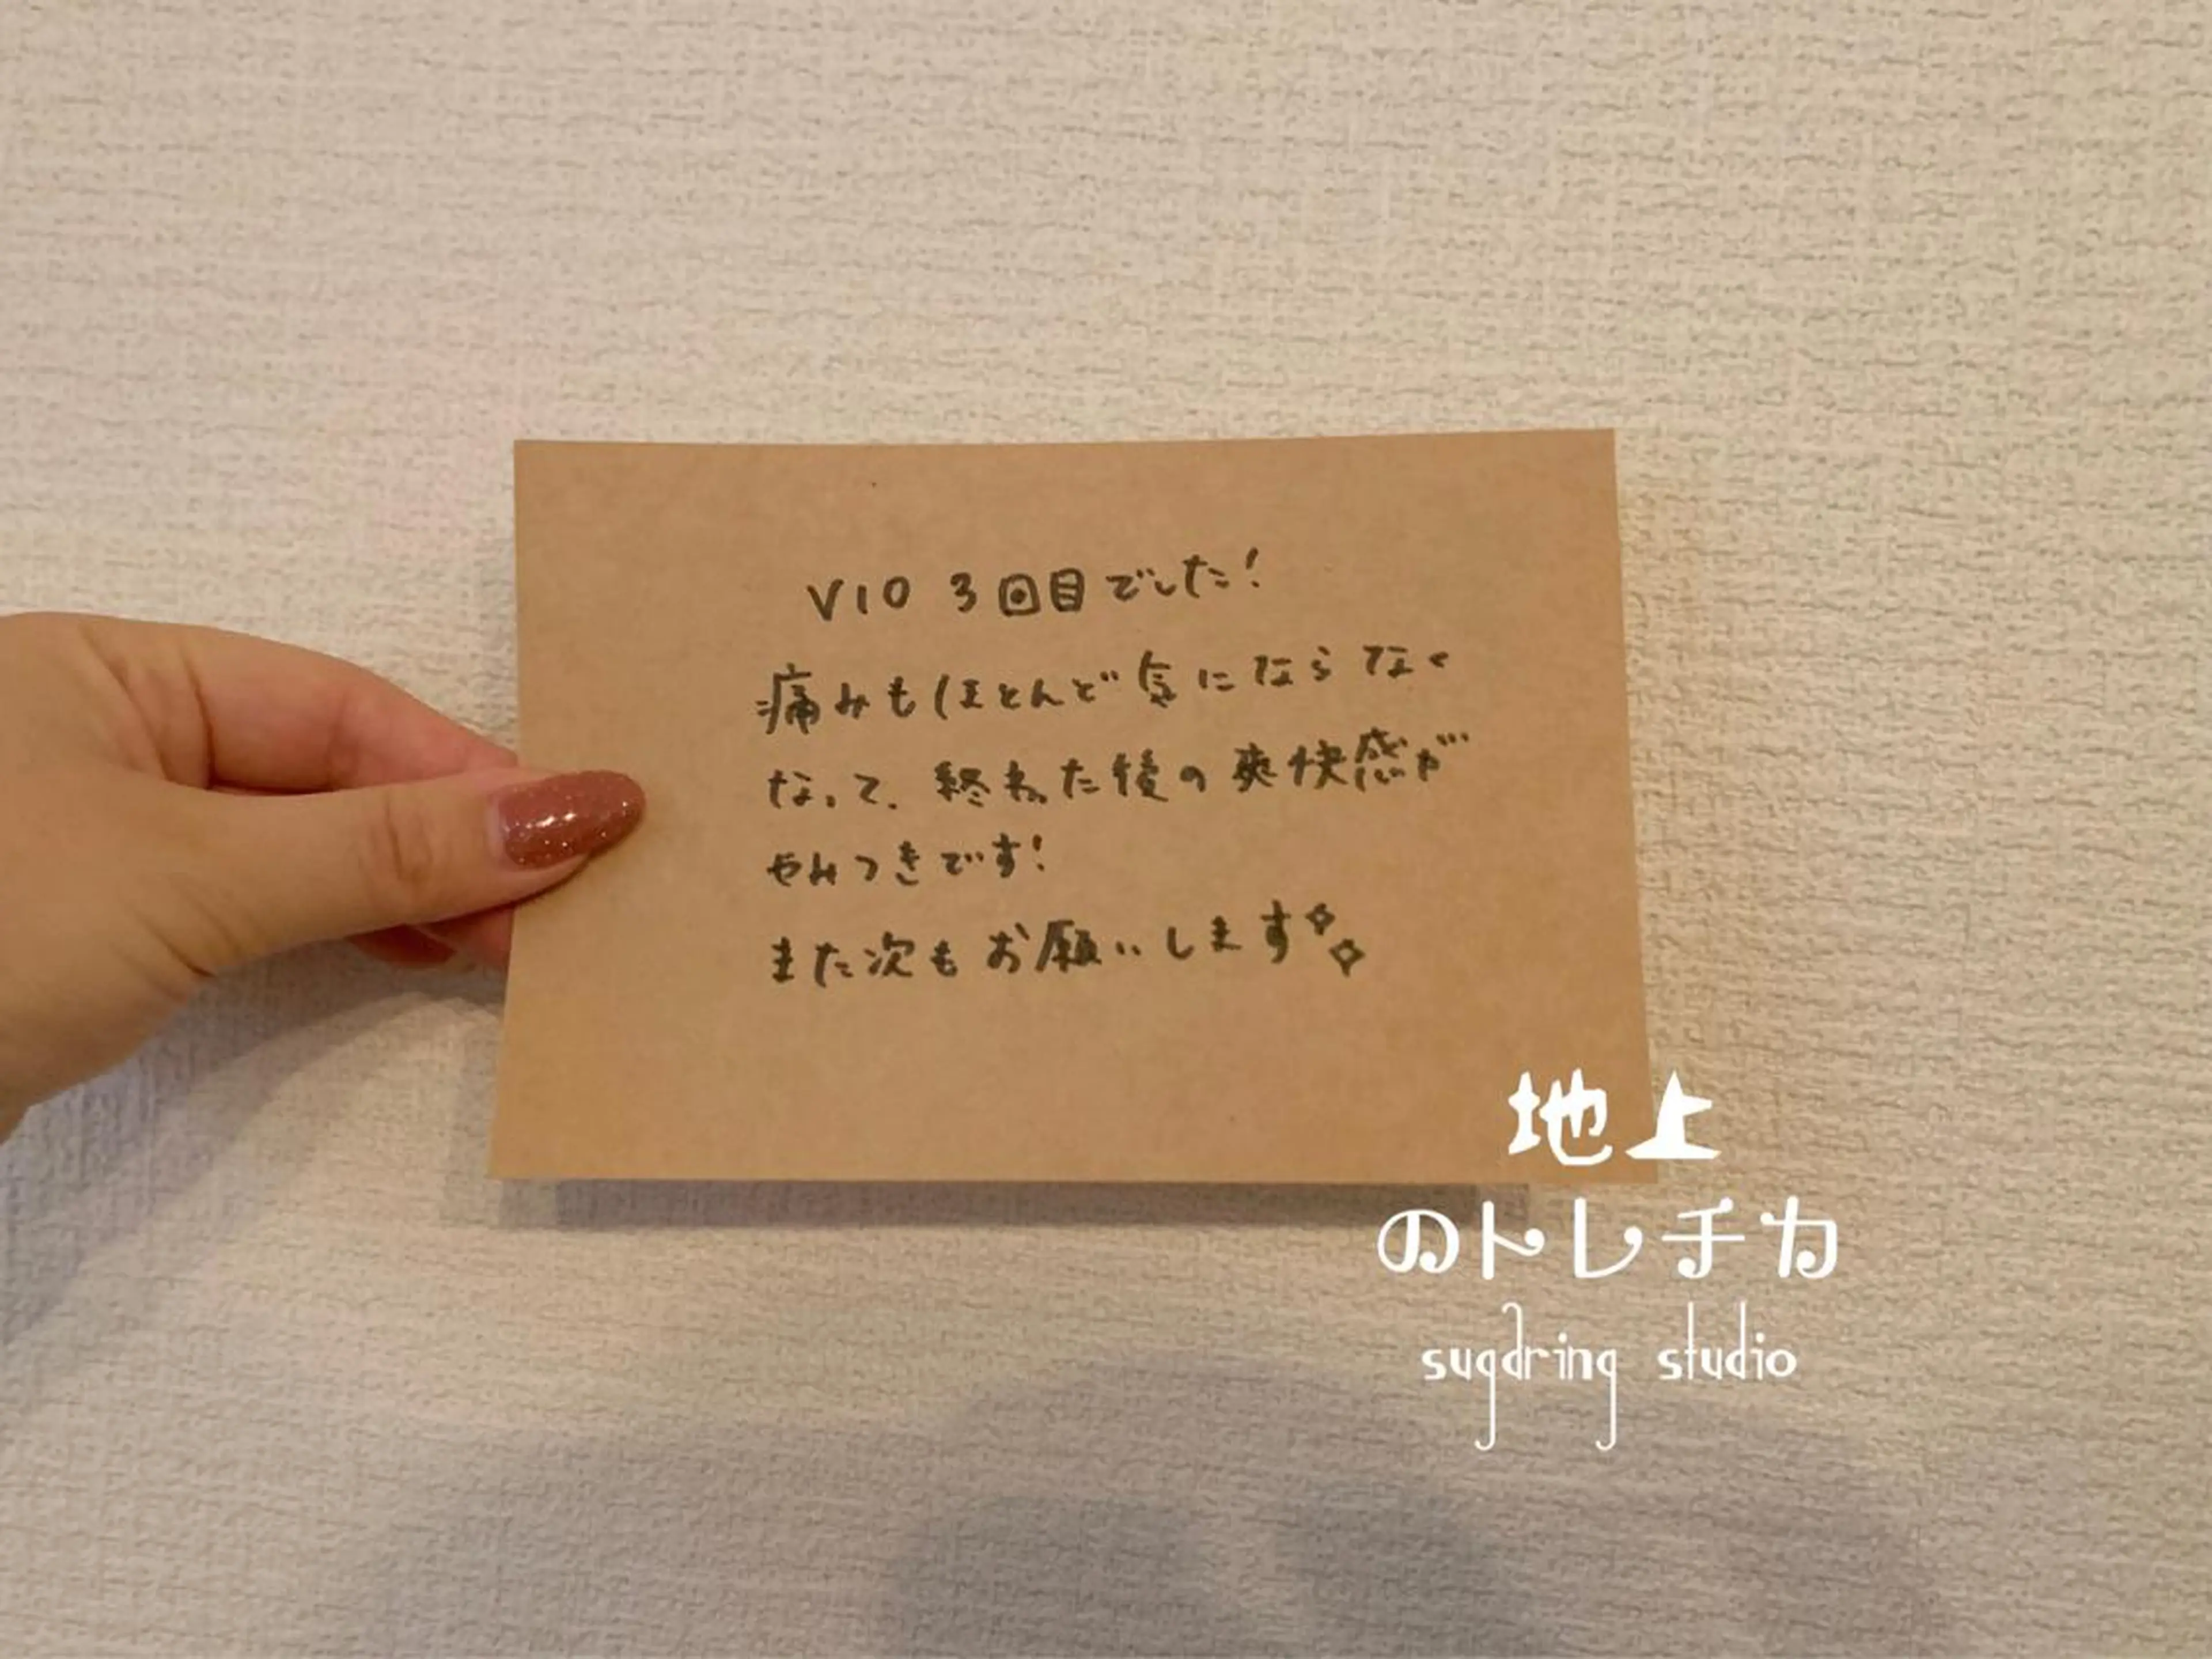 VIO 3回目でした!
痛みもほとんど気にならなく
なって、終わった後の爽快感が
やみつきです!
また次もお願いします✧✧
地上
のトレチカ
sugaring studio